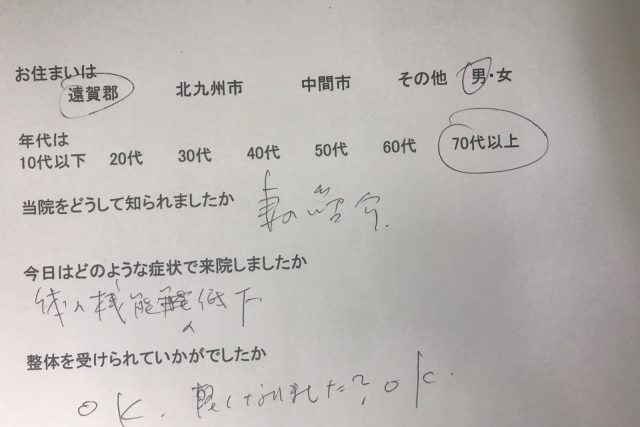 お住まいは
遠賀郡 北九州市 中間市 その他 男・女
年代は
10代以下 20代 30代 40代 50代 60代 70代以上
当院をどうして知られましたか 妻の
今日はどのような症状で来院しましたか
体の機能 低下
整体を受けられていかがでしたか
OK. 軽くなりました? OK.